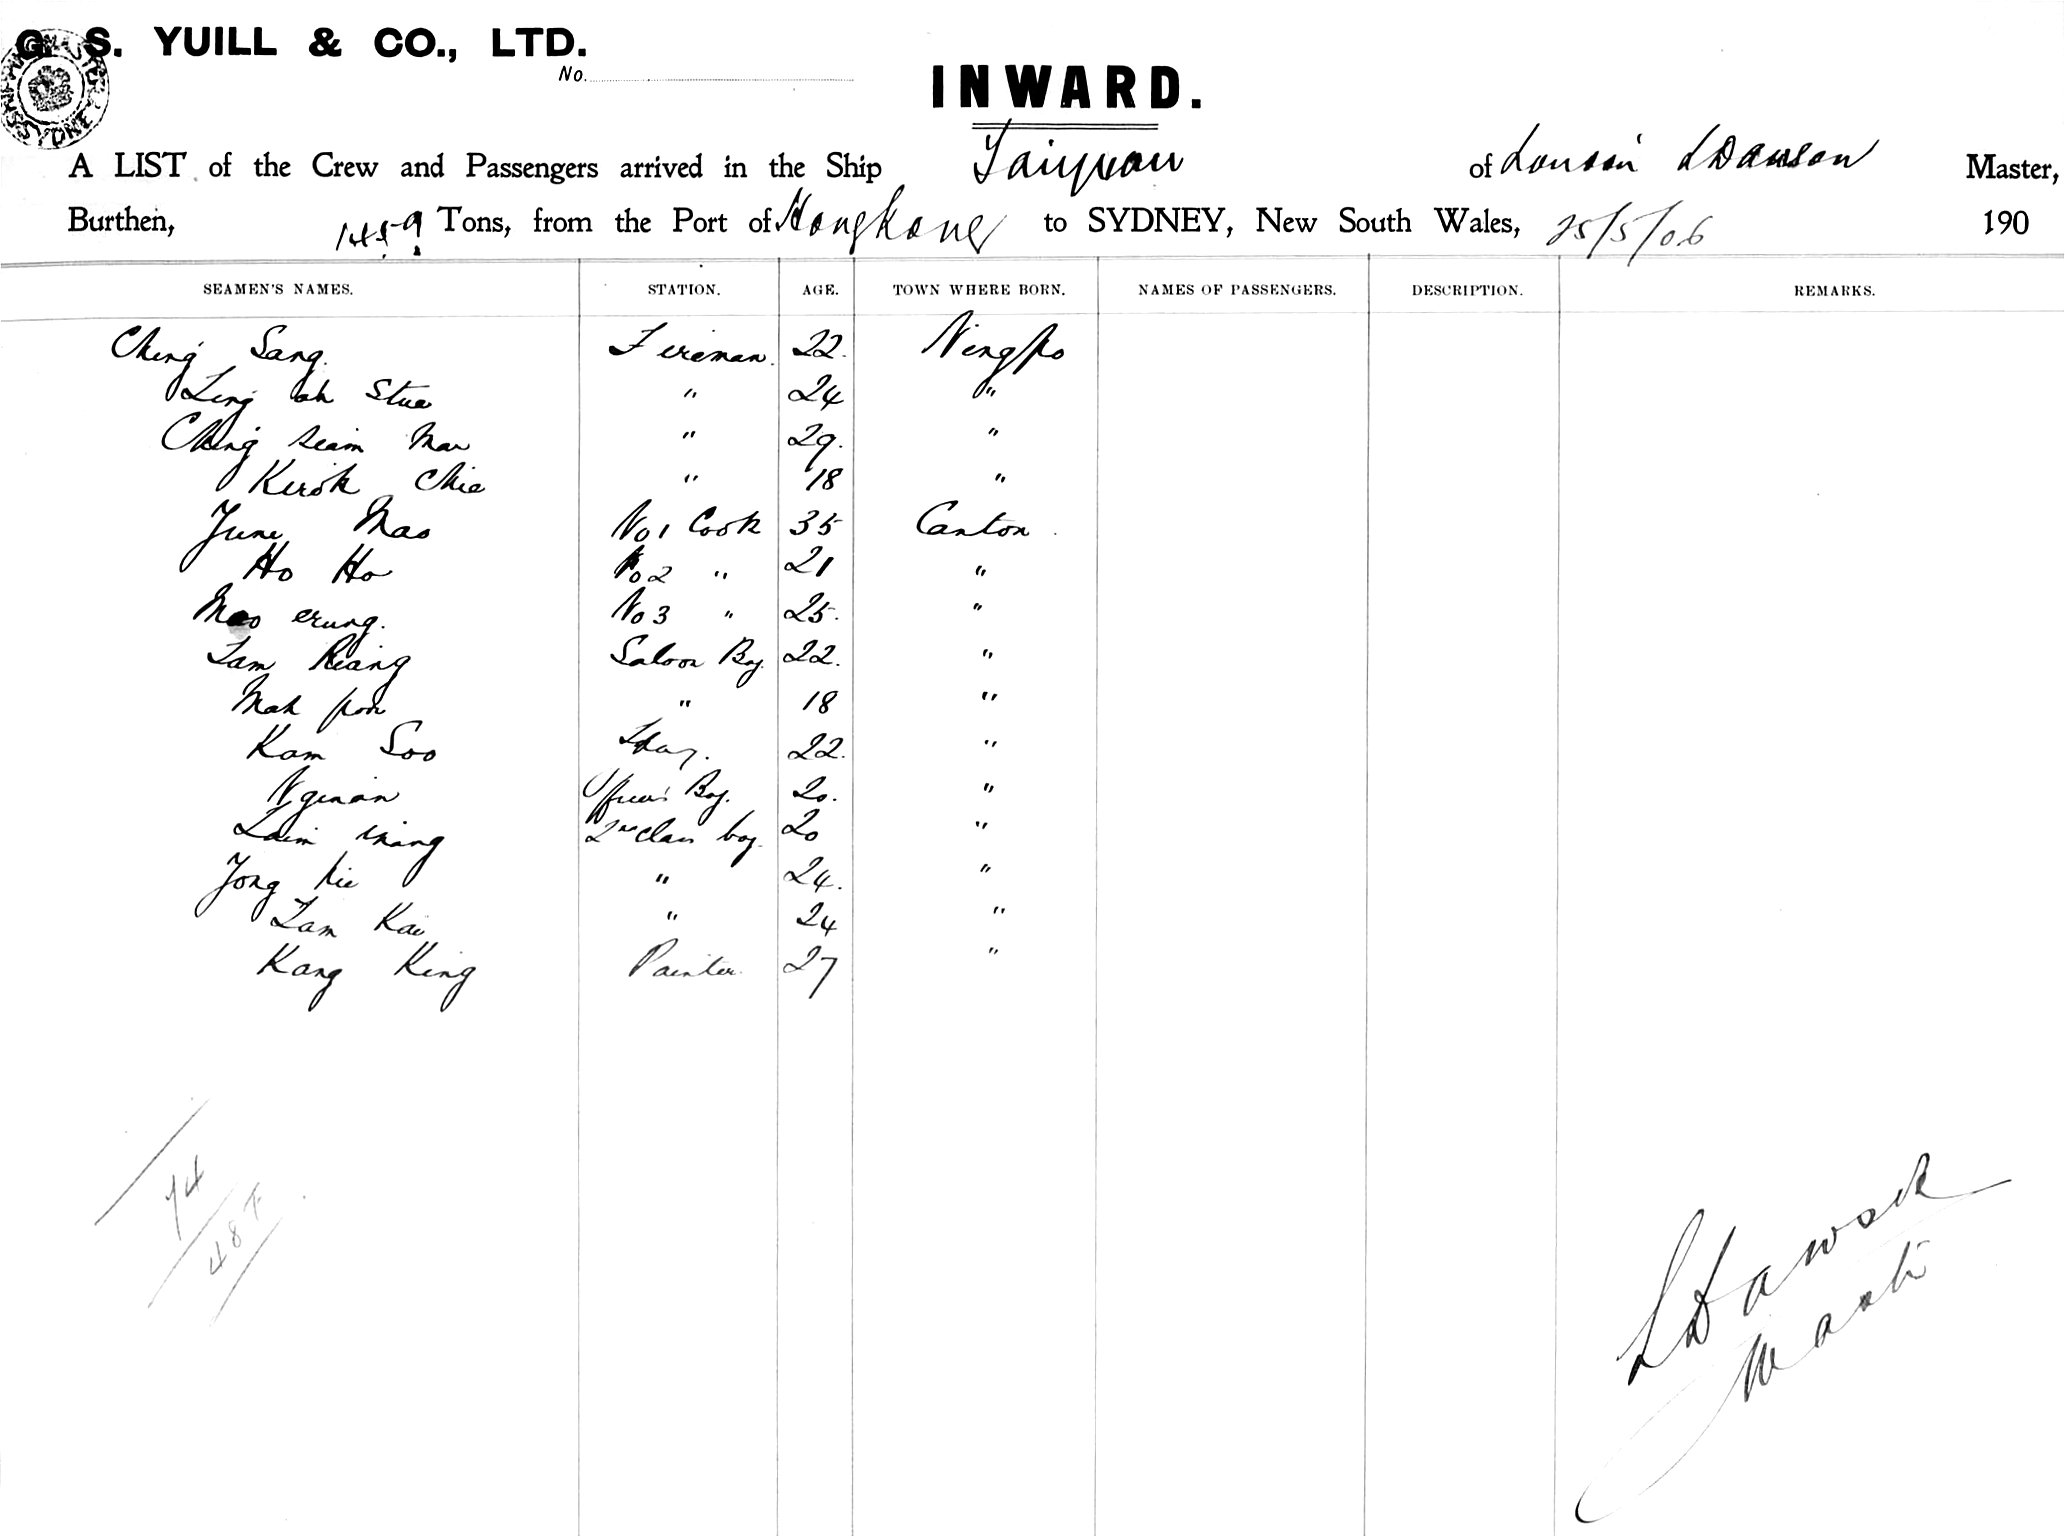 G. S. YUILL & CO., LTD.
No.
INWARD.
A LIST of the Crew and Passengers arrived in the Ship Taiyuan of London L Dawson Master,
Burthen, 1459 Tons, from the Port of Hongkong to SYDNEY, New South Wales, 25/5/06 190
SEAMEN'S NAMES. STATION. AGE. TOWN WHERE BORN. NAMES OF PASSENGERS. DESCRIPTION. REMARKS.
Ching Sang. Fireman. 22. Ningpo
Ling ah Stue " 24 "
Ching Seam Mow " 29. "
Kwok Chie " 18 "
June Mao No 1 Cook 35 Canton.
Ho Ho No 2 " 21 "
Mao erung. No 3 " 25. "
Lam Kiang Saloon Boy. 22. "
Mah pon " 18 "
Kam Soo 22. "
Nginan Officers Boy. 20. "
Laim 2nd Class boy. 20 "
Yong kie " 24. "
Lam Kai " 24 "
Kang King Painter. 27 "
74
48 F
L Dawson
Master